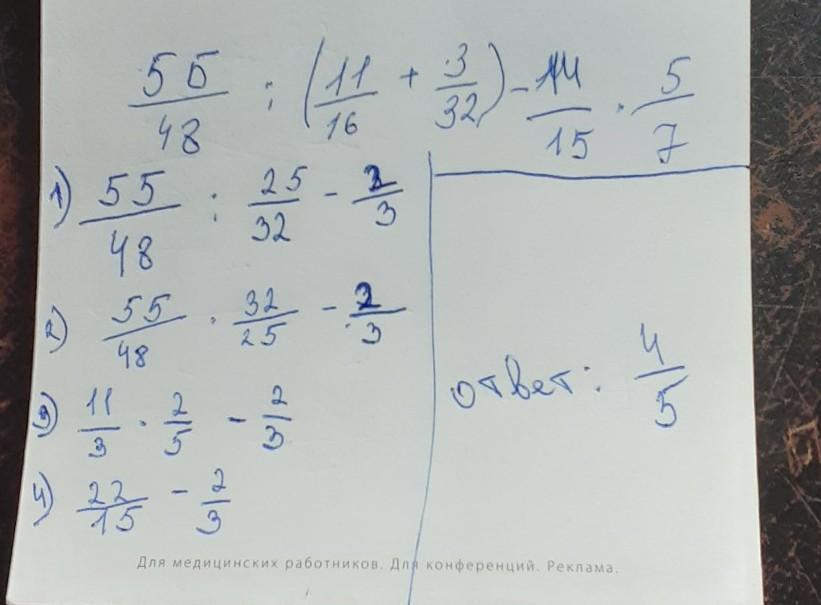 55/48 : (11/16 + 3/32) - 14/15 · 5/7
1) 55/48 : 25/32 - 2/3
2) 55/48 · 32/25 - 2/3
3) 11/3 · 2/5 - 2/3
4) 22/15 - 2/3
ответ: 4/5
Для медицинских работников. Для конференций. Реклама.